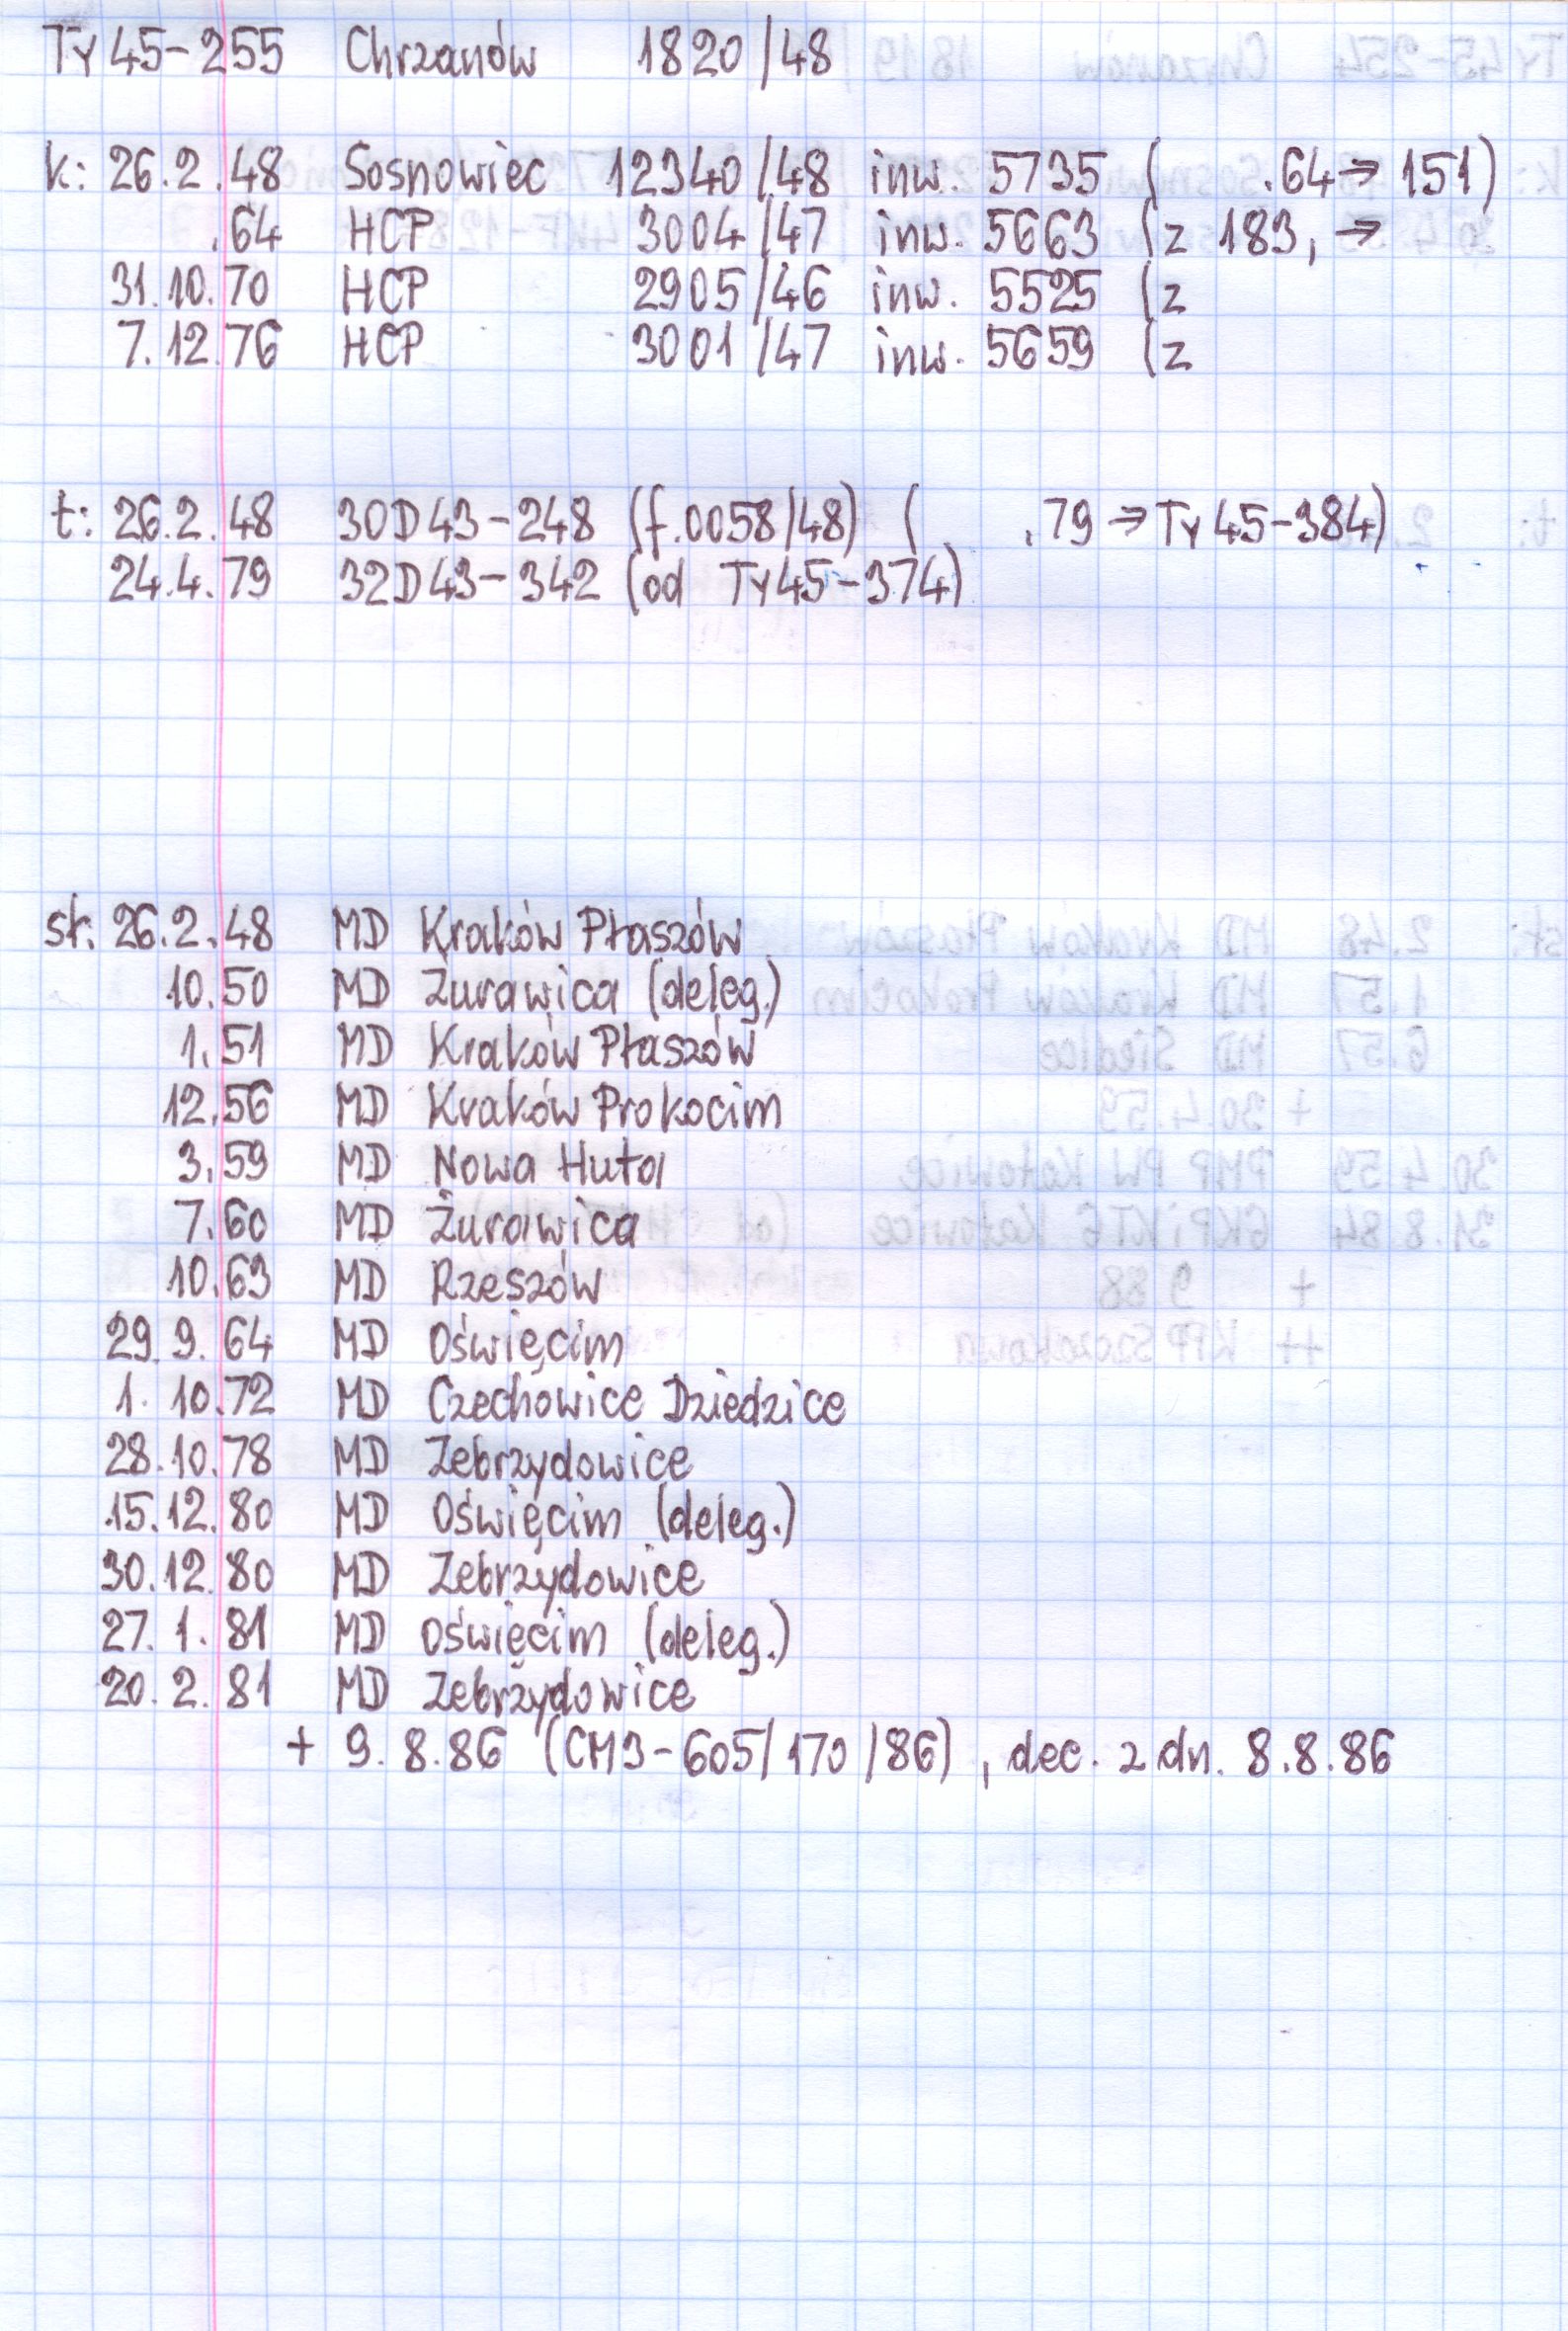 Ty45-255 Chrzanów 1820/48
k: 26.2.48 Sosnowiec 12340/48 inw. 5735 ( .64→ 151)
.64 HCP 3004/47 inw. 5663 (z 183, →
31.10.70 HCP 2905/46 inw. 5525 (z
7.12.76 HCP 3001/47 inw. 5659 (z
t: 26.2.48 30D43-248 (f.0058/48) ( .79 → Ty45-384)
24.4.79 32D43-342 (od Ty45-374)
st. 26.2.48 MD Kraków Płaszów
10.50 MD Żurawica (deleg.)
1.51 MD Kraków Płaszów
12.56 MD Kraków Prokocim
3.59 MD Nowa Huta
7.60 MD Żurawica
10.63 MD Rzeszów
29.9.64 MD Oświęcim
1.10.72 MD Czechowice Dziedzice
28.10.78 MD Zebrzydowice
15.12.80 MD Oświęcim (deleg.)
30.12.80 MD Zebrzydowice
27.1.81 MD Oświęcim (deleg.)
20.2.81 MD Zebrzydowice
+ 9.8.86 (CM3-605/170/86), dec. z dn. 8.8.86